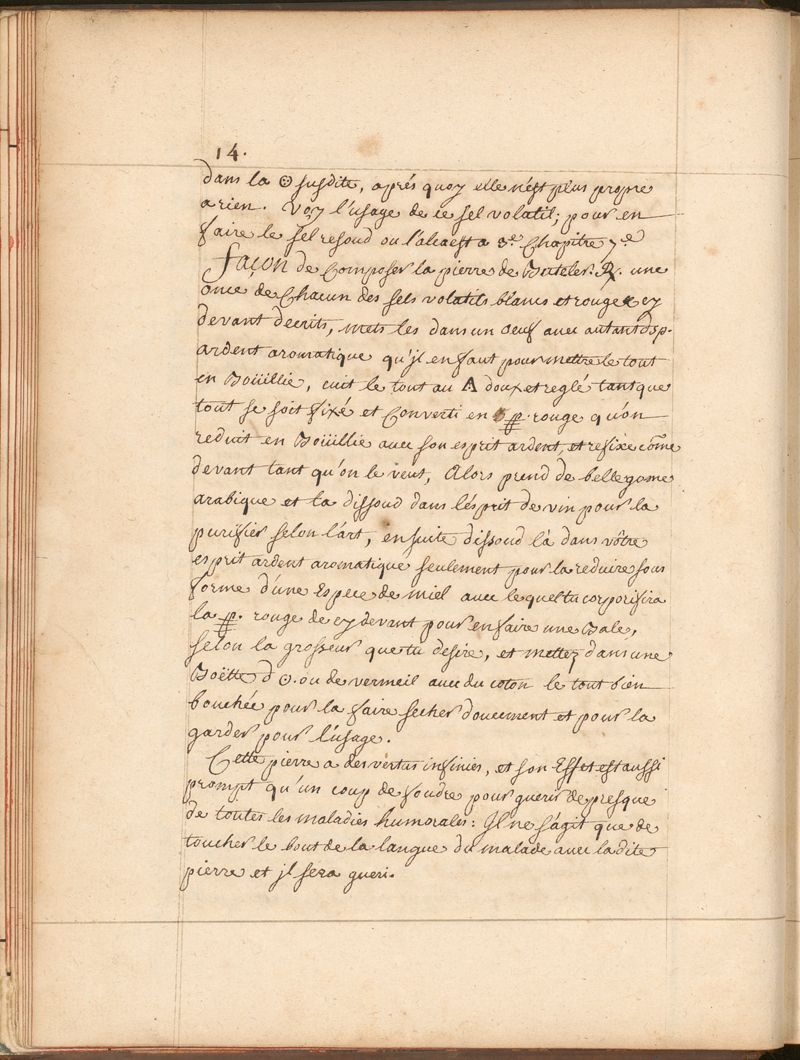 14.
dans la ☉ susdite, aprés quoy elle n'est plus propre
a rien. Voy l'usage de ce sel volatil; pour en
faire le sel resoud ou l'alcaest a 3.e Chapitre 7.e
Façon de Composer la pierre de Buteler. ℞. une
once de Chacun des sels volatils blancs et rouge cy
devant decrits, mets les dans un oeuf avec autant d'sp.
ardent aromatique qu'jl en faut pour mettre le tout
en Boüillie, cuit le tout au A doux et reglé tant que
tout se soit fixé et Converti en rouge qu'on
reduit en Boüillie avec son esprit ardent, et refixe cõme
devant tant qu'on le veut, Alors prend de belle gome
arabique et la dissoud dans l'ésprit de vin pour la
purifier selon l'art, ensuite dissoud là dans vôtre
esprit ardent aromatique seulement pour la reduire sous
forme d'une Espece de miel avec lequel tu corporifira
la rouge de cy devant pour en faire une Bale,
selon la grosseur que tu desire, et mettez dans une
Boëtte d'☉. ou de vermeil avec du coton le tout bien
bouchée pour la faire secher doucement et pour la
garder pour l'usage.
Cette pierre a des vertus infinies, et son Effet est aussi
prompt qu'un coup de foudre pour guerir de presque
de toutes les maladies humorales: Jl ne s'agit que de
toucher le bout de la langue du malade avec la dite
pierre et jl sera gueri.